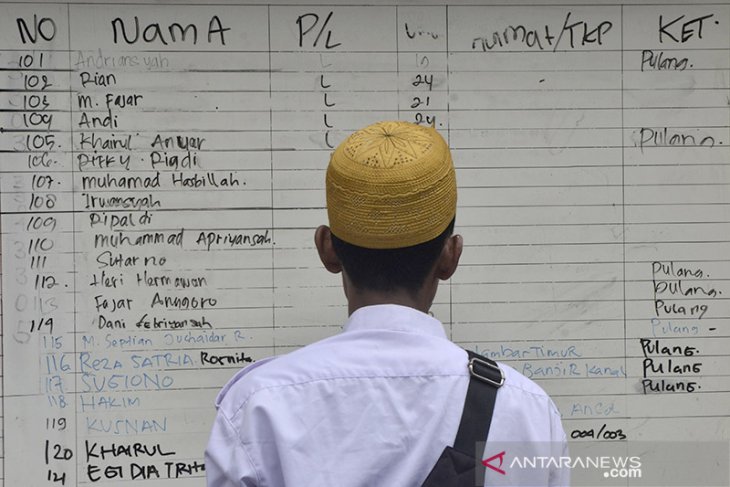 NO NAMA P/L /TKP KET.
101 Andriansyah L Pulang.
102 Rian L 24 -
103 M. Fajar L 21
104 Andi L 24
105. Khairul Anwar L Pulang.
106. Rifky Riadi
107. Muhamad Hasbillah.
108 Irwansyah
109 Ripaldi
110 Muhammad Apriyansah.
111 Sutarno
112. Heri Hermawan Pulang.
113 Fajar Anggoro Pulang.
114 Dani Febriyansah Pulang
115 M. Septian Juchaidar R. Pulang -
116 REZA SATRIA Jambar TIMUR PULANG.
117. SUGIONO Banjir Kanal PULANG.
118. HAKIM PULANG.
119 KUSNAN Ancol
120 KHAIRUL 004/003
121 EGI DIA
ANTARANEWS
.com